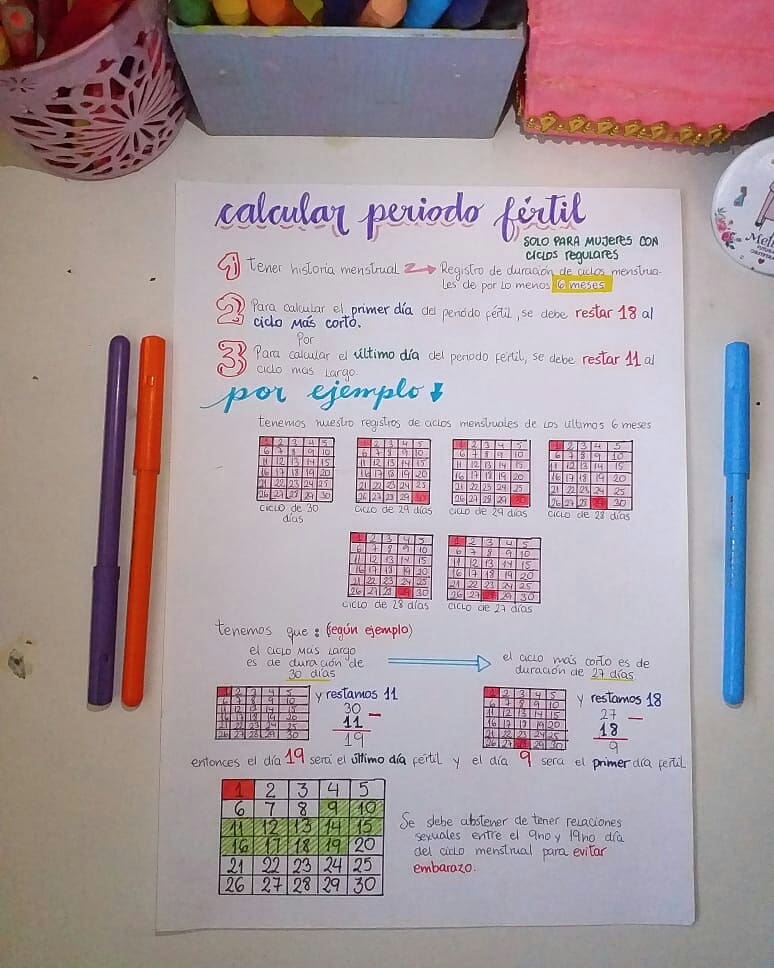 calcular periodo fértil
SOLO PARA MUJERES CON
ciclos regulares
1 tener historia menstrual → Registro de duración de ciclos menstrua-
les de por lo menos 6 meses
2 Para calcular el primer día del periodo fértil, se debe restar 18 al
ciclo más corto.
Por
3 Para calcular el último día del periodo fertil, se debe restar 11 al
ciclo mas largo.
por ejemplo
tenemos nuestro registros de ciclos menstruales de los ultimos 6 meses
1 2 3 4 5
6 7 8 9 10
11 12 13 14 15
16 17 18 19 20
21 22 23 24 25
26 27 28 29 30
ciclo de 30
días
1 2 3 4 5
6 7 8 9 10
11 12 13 14 15
16 17 18 19 20
21 22 23 24 25
26 27 28 29 30
ciclo de 29 días
1 2 3 4 5
6 7 8 9 10
11 12 13 14 15
16 17 18 19 20
21 22 23 24 25
26 27 28 29 30
ciclo de 29 días
1 2 3 4 5
6 7 8 9 10
11 12 13 14 15
16 17 18 19 20
21 22 23 24 25
26 27 28 29 30
ciclo de 28 días
1 2 3 4 5
6 7 8 9 10
11 12 13 14 15
16 17 18 19 20
21 22 23 24 25
26 27 28 29 30
ciclo de 28 días
1 2 3 4 5
6 7 8 9 10
11 12 13 14 15
16 17 18 19 20
21 22 23 24 25
26 27 28 29 30
ciclo de 27 días
tenemos que: (según ejemplo)
el ciclo más largo
es de duración de
30 días
el ciclo más corto es de
duración de 27 días
1 2 3 4 5
6 7 8 9 10
11 12 13 14 15
16 17 18 19 20
21 22 23 24 25
26 27 28 29 30
y restamos 11
30 –
11
19
1 2 3 4 5
6 7 8 9 10
11 12 13 14 15
16 17 18 19 20
21 22 23 24 25
26 27 28 29 30
y restamos 18
27 –
18
9
entonces el día 19 será el último día fértil y el día 9 sera el primer día fertil
1 2 3 4 5
6 7 8 9 10
11 12 13 14 15
16 17 18 19 20
21 22 23 24 25
26 27 28 29 30
Se debe abstener de tener relaciones
sexuales entre el 9no y 19no día
del ciclo menstrual para evitar
embarazo.